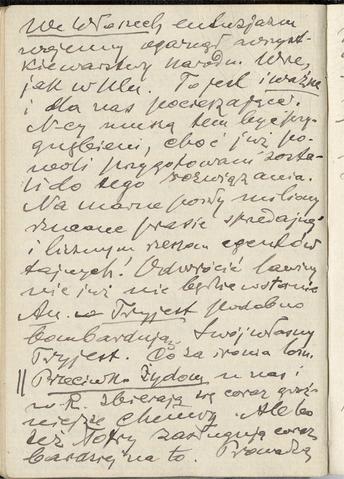 We Włoszech entuzjazm
wojenny ogarnął wszyst-
kie warstwy narodu. Wre,
jak w Ulu. To jest i ważne
i dla nas pocieszające.
N-cy muszą tem być przy-
gnębieni, choć już po-
mali przygotowani zosta-
li do tego rozwiązania.
Na marne poszły miliony
rzucane prasie sprzedajnej
i licznym rzeszom agentów
tajnych! Odwrócić lawiny
nic już nie będzie w stanie
Au. w Tryjest podobno
bombardują. Swój własny
Tryjest. Co za ironia losu.
|| Przeciwko Żydom u nas i
w R. zbierają się coraz groź-
niejsze chmury. Ale bo
też łotry zasługują coraz
bardziej na to. Prowadzą